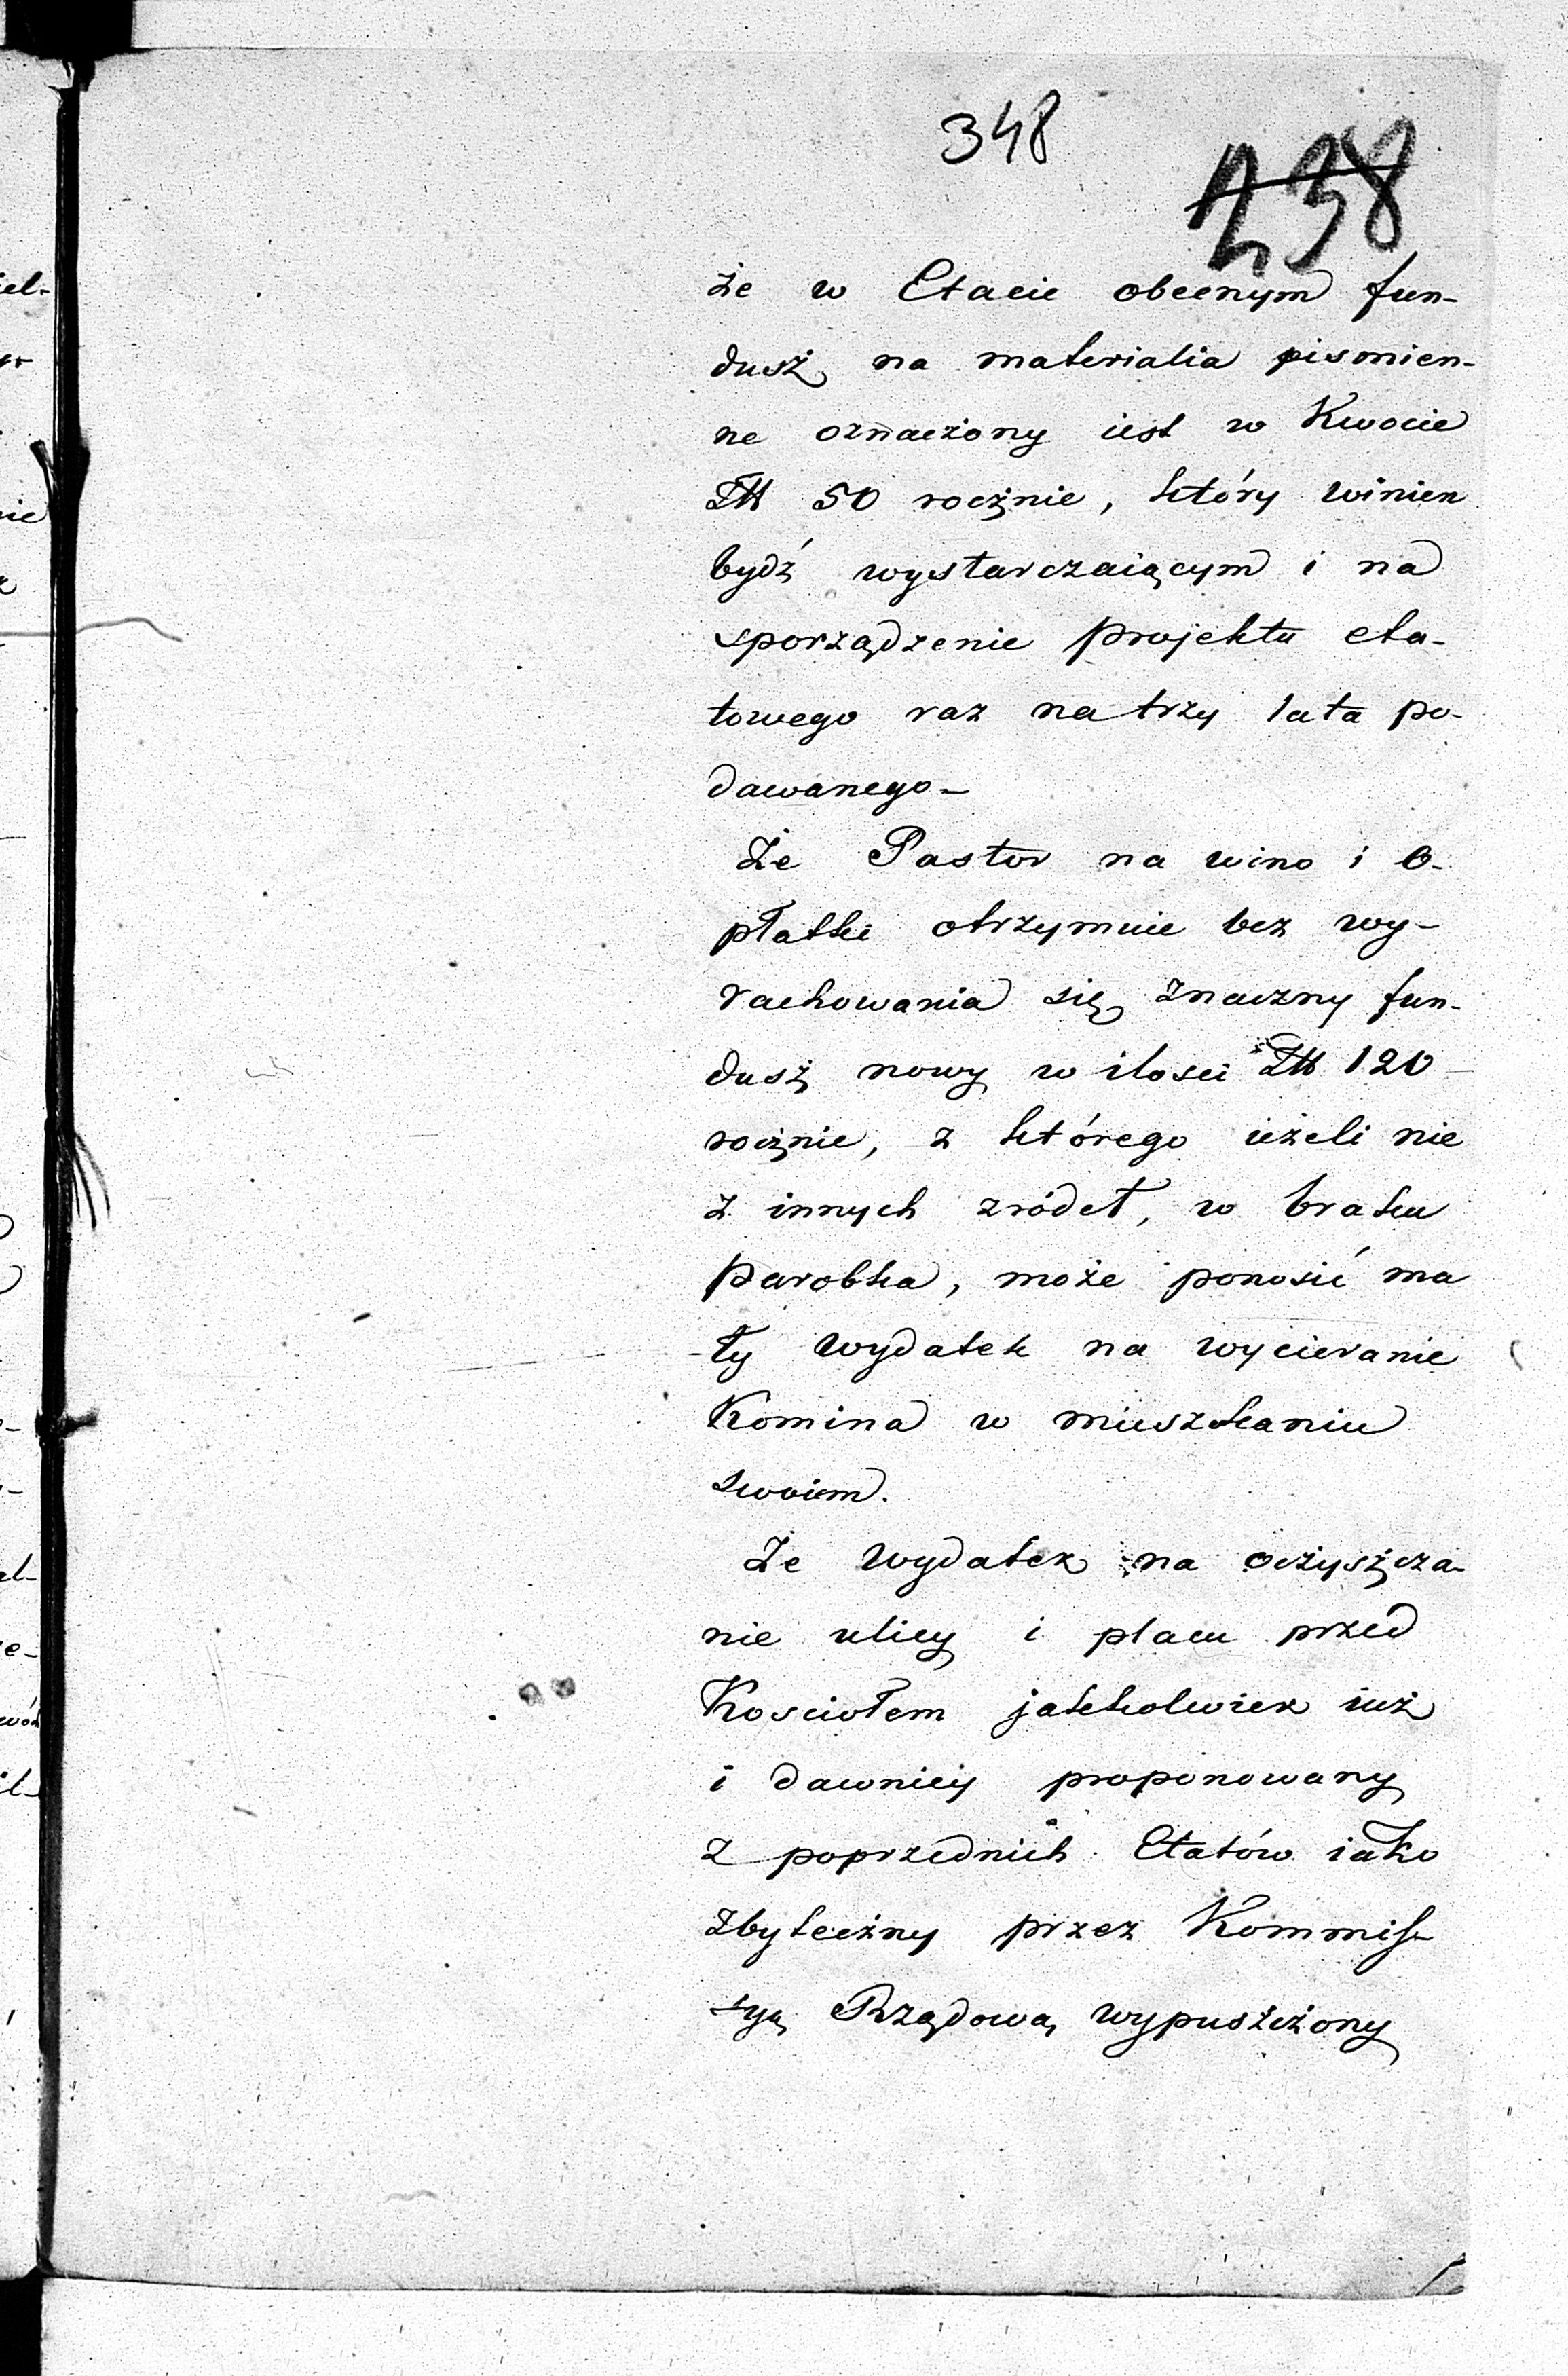 348
238
że w Etacie obecnym fun-
dusż na materialia pismien-
ne oznaczony iest w Kwocie
Zł 50 rocznie, który winien
bydź wystarczaiącym i na
sporządzenie projektu eta-
towego raz na trzy lata po-
dawanego –
Że Pastor na wino i o-
płatki otrzymuie bez wy-
rachowania się znaczny fun-
dusż nowy w ilosci Zł 120
rocznie, z którego ieżeli nie
z innych zródeł, w braku
parobka, może ponosić ma
ły wydatek na wycieranie
Komina w mieszkaniu
swoiem.
Że wydatek na oczyszcza-
nie ulicy i placu przed
Kosciołem jakkolwiek iuż
i dawniey proponowany
z poprzednich Etatów iako
zbyteczny przez Kommis-
syą Rządową wypuszczony